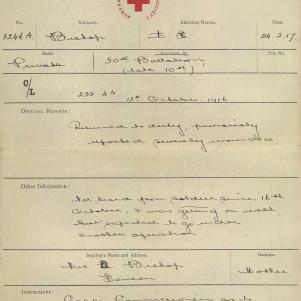 AUSTRALIAN
SOCIETY
No. Surname. Christian Names. Date.
3246A. Bishop 24.2.17.
Rank: Regiment &c. File No.
Private 50th Battalion
(late 10th)
C/L 235 43 1st October 1916
OFFICIAL REPORTS:
Returned to duty, previously
reported severely wounded
Other Information:
Not heard from soldier since 16th
October, & was getting on well,
but expected to go under
another operation
Inquirer's Name and Address. Relation.
Mrs Bishop Mother
Instructions: